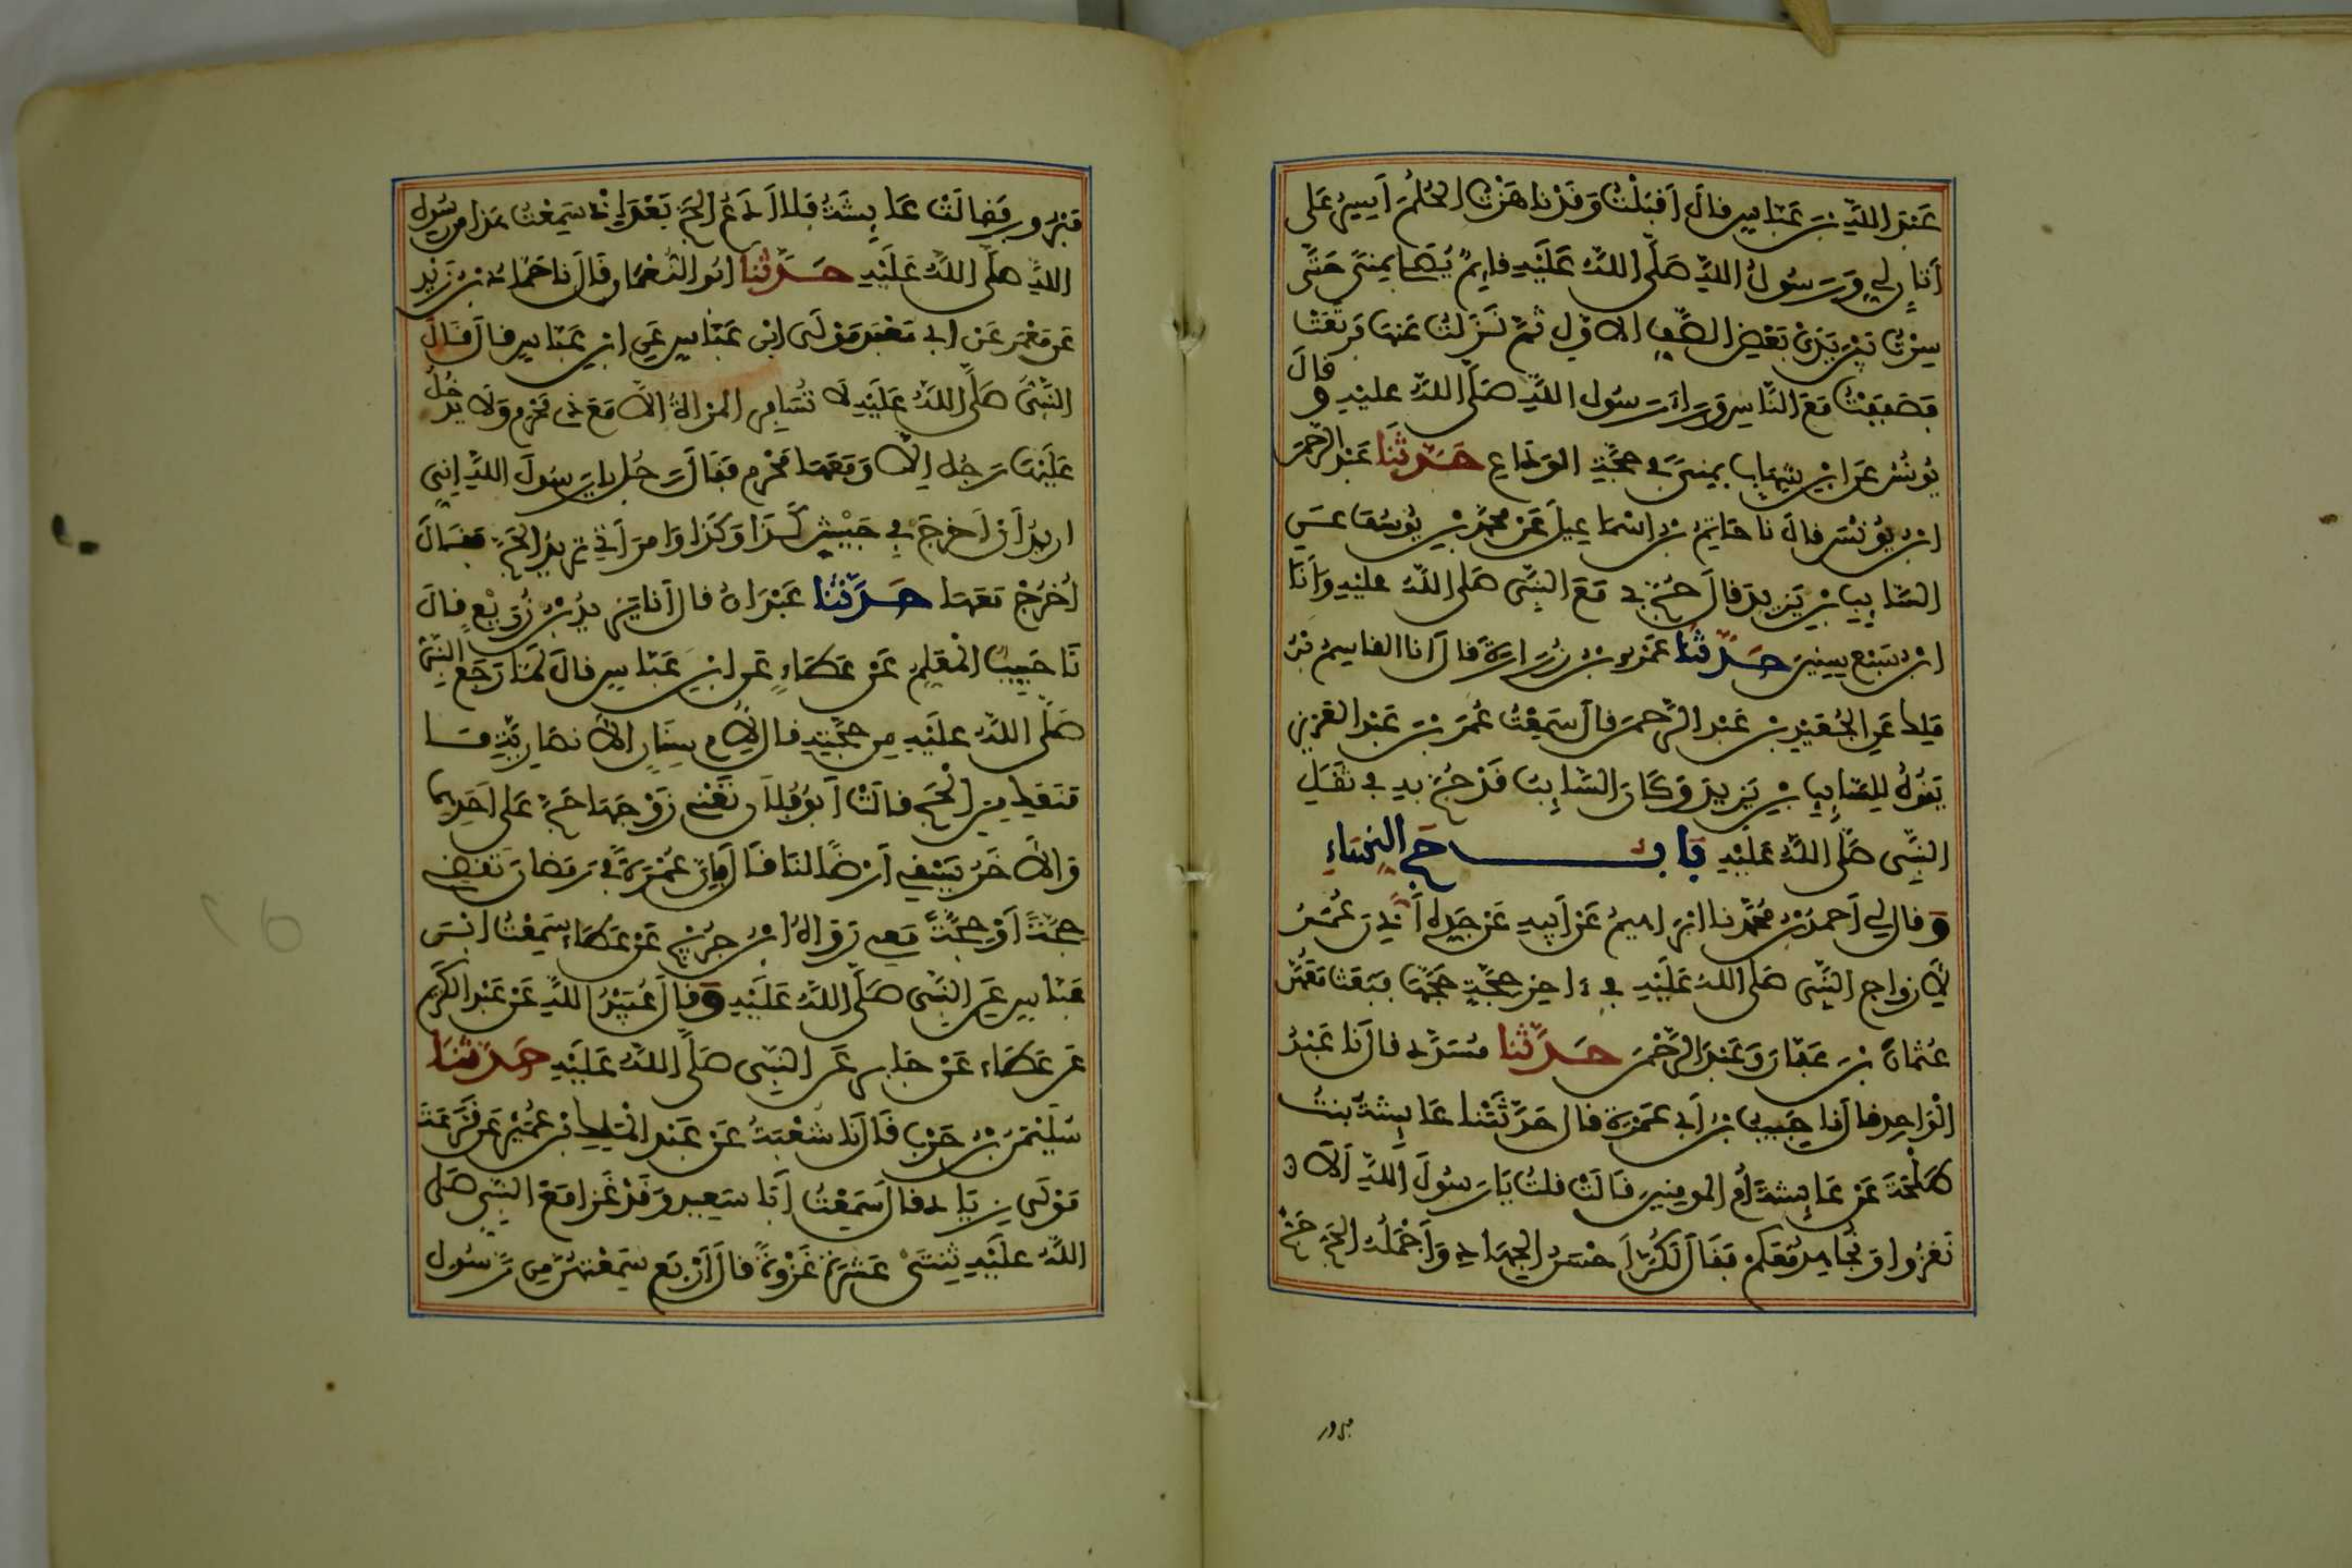 عَبْدَ اللَّهِ بْنَ عَبَّاسٍ قالَ أَقْبَلْتُ وَقَدْ نَاهَزْتُ الحُلُمَ أَسِيرُ عَلى
أَتَانٍ لِي وَرَسُولُ اللَّهِ صَلَّى اللَّهُ عَلَيْهِ قايِمٌ يُصَلِّي بِمِنىً حَتَّى
سِرْتُ بَيْنَ يَدَيْ بَعْضِ الصَّفِّ الاوَّلِ ثُمَّ نَزَلْتُ عَنْهَا فَرَتَعَتْ
فَصَفَفْتُ مَعَ النَّاسِ وَرَاءَ رَسُول اللَّهِ صَلَّى اللَّهُ عليْهِ وقالَ
يُونُسُ عَنِ ابْنِ شِهَابٍ بِمِنىً فِي حَجَّةِ الوَدَاعِ حَدَّثَنَا عَبْدُ الرَّحْمَنِ
ابْنُ يُونُسَ قالَ نا حَاتِمُ بْنُ اسْمَاعِيلَ عَنْ مُحَمَّدِ بْنِ يُوسُفَ عَنِ
السَّايِبِ بْنِ يَزِيدَ قالَ حُجَّ بِي مَعَ النَّبِيِّ صَلى اللَّهُ عليْهِ وَأَنَا
ابْنُ سَبْعِ سِنِينَ حَدَّثَنَا عَمْرُو بْنُ زُرَارَةَ قَالَ أَنا القاسِمُ بْنُ
مَلِكٍ عَنِ الجُعَيْدِ بْنِ عَبْدِ الرَّحْمنِ قالَ سَمِعْتُ عُمَرَ بْنَ عَبْدِ العَزِيزِ
يَقُولُ لِلسَّايِبِ بْنِ يَزِيدَ وَكَانَ السَّايِبُ قَدْ حُجَّ بِهِ فِي ثَقَلِ
النَّبِيِّ صَلَّى اللَّهُ عَلَيْهِ بَابُ حَجِّ النِّسَاءِ
وَقال لِي أَحمدُ بْنُ مُحَمَّدٍ نا ابْرَاهِيمُ عَنْ أَبِيهِ عَنْ جَدِّهِ أَذِنَ عُمَرُ
لأزواجِ النَّبِيِّ صَلى اللهُ عَلَيْهِ فِي ءاخِرِ حَجَّةٍ حَجَّهَا فَبَعَثَ مَعَهُنَّ
عُثمانَ بْنَ عَفَّانَ وَعَبْدَ الرَّحْمنِ حَدَّثَنا مُسَدَّدٌ قالَ نَا عَبْدُ
الْوَاحِدِ قالَ نا حَبِيبُ بْنُ أَبِي عَمْرَةَ قال حَدَّثَتْنا عَايِشَةُ بنتُ
طَلْحَةَ عَنْ عَايِشَةَ أُمِّ المومِنِينَ قَالَتْ قلتُ يَا رَسُولَ اللَّهِ أَلَا
نَغْزُوا وَنُجَاهِدُ مَعَكُمْ فَقَالَ لَكُنَّ أَحْسَنُ الجِهَادِ وَأَجْمَلُهُ الحَجُّ حَجٌّ
مبرور
مَبْرُورٌ فَقالَتْ عَايِشَةُ فَلا أَدَعُ الحَجَّ بَعْدَ إِذْ سَمِعْتُ هَذَا مِن رَسُولِ
اللَّهِ صَلَّى اللَّهُ عَلَيْهِ حَدَّثَنَا ابُو النُّعْمَانِ قَالَ نا حَمَّادُ بْنُ زَيْدٍ
عَن عَمْرٍو عَنْ ابِي مَعْبَدٍ مَوْلَى ابْنِ عَبَّاسٍ عَنِ ابْنِ عَبَّاسٍ قالَ قَالَ
النَّبِيُّ صَلَّى اللَّهُ عَلَيْهِ لَا تُسَافِرِ المَرْأَةُ الاَّ مَعَ ذِي مَحْرَمٍ وَلَا يَدْخُلُ
عَلَيْهَا رَجُلٌ إِلاَّ وَمَعَهَا مَحْرَمٌ فَقَالَ رَجُلٌ يا رَسُولَ اللَّهِ إِنِّي
ارِيدُ أَنْ اَخْرُجَ فِي جَيْشِ كَذَا وَكَذَا وَامْرَأَتِي تُرِيدُ الحَجَّ فَقَالَ
اُخْرُجْ مَعَهَا حَدَّثَنَا عَبْدَانُ قال أَنَا يَزِيدُ بْنُ زُرَيْعٍ قالَ
نَا حَبِيبٌ الْمُعَلِّمُ عَنْ عَطَاءٍ عَنِ ابْنِ عَبَّاسٍ قالَ لَمَّا رَجَعَ النَّبِيُّ
صَلَّى اللَّهُ عليْهِ مِن حَجَّتِهِ قال لأُمِّ سِنَانٍ الأَنصَارِيَّةِ مَا
مَنَعَكِ مِنَ الْحَجِّ قالَتْ أَبُو فُلَانٍ تَعْنِي زَوْجَهَا حَجَّ عَلى اَحَدِهِما
وَالاَخَرُ يَسْقِي أَرْضًا لنَا قَالَ فَإِنَّ عُمْرَةً فِي رَمَضَانَ تَقْضِي
حَجَّةً أَوْ حَجَّةً مَعِي رَوَاهُ ابْنُ جُرَيْجٍ عَنْ عَطَاءٍ سَمِعْتُ ابْنَ
عَبَّاسٍ عَنِ النَّبِيِّ صَلَّى اللَّهُ عَلَيْهِ وَقالَ عُبَيْدُ اللَّهِ عَنْ عَبْدِ الكَرِيمِ
عَن عَطَاءٍ عَنْ جَابِرٍ عَنِ النَّبِيِّ صَلَّى اللَّهُ عَلَيْهِ حَدَّثَنَا
سُلَيْمَنُ بْنُ حَرْبٍ قَالَ نَا شُعْبَةُ عَنْ عَبْدِ الْمَلِكِ بْنِ عُمَيْرٍ عَن قَزَعَةَ
مَوْلَى زِيَادٍ قالَ سَمِعْتُ أَبَا سَعِيدٍ وَقَدْ غَزَا مَعَ النَّبِيِّ صَلى
اللَّهُ علَيْهِ ثِنْتَيْ عَشْرَةَ غَزْوَةً قالَ أَرْبَعٌ سَمِعْتُهُنَّ مِن رَسُول